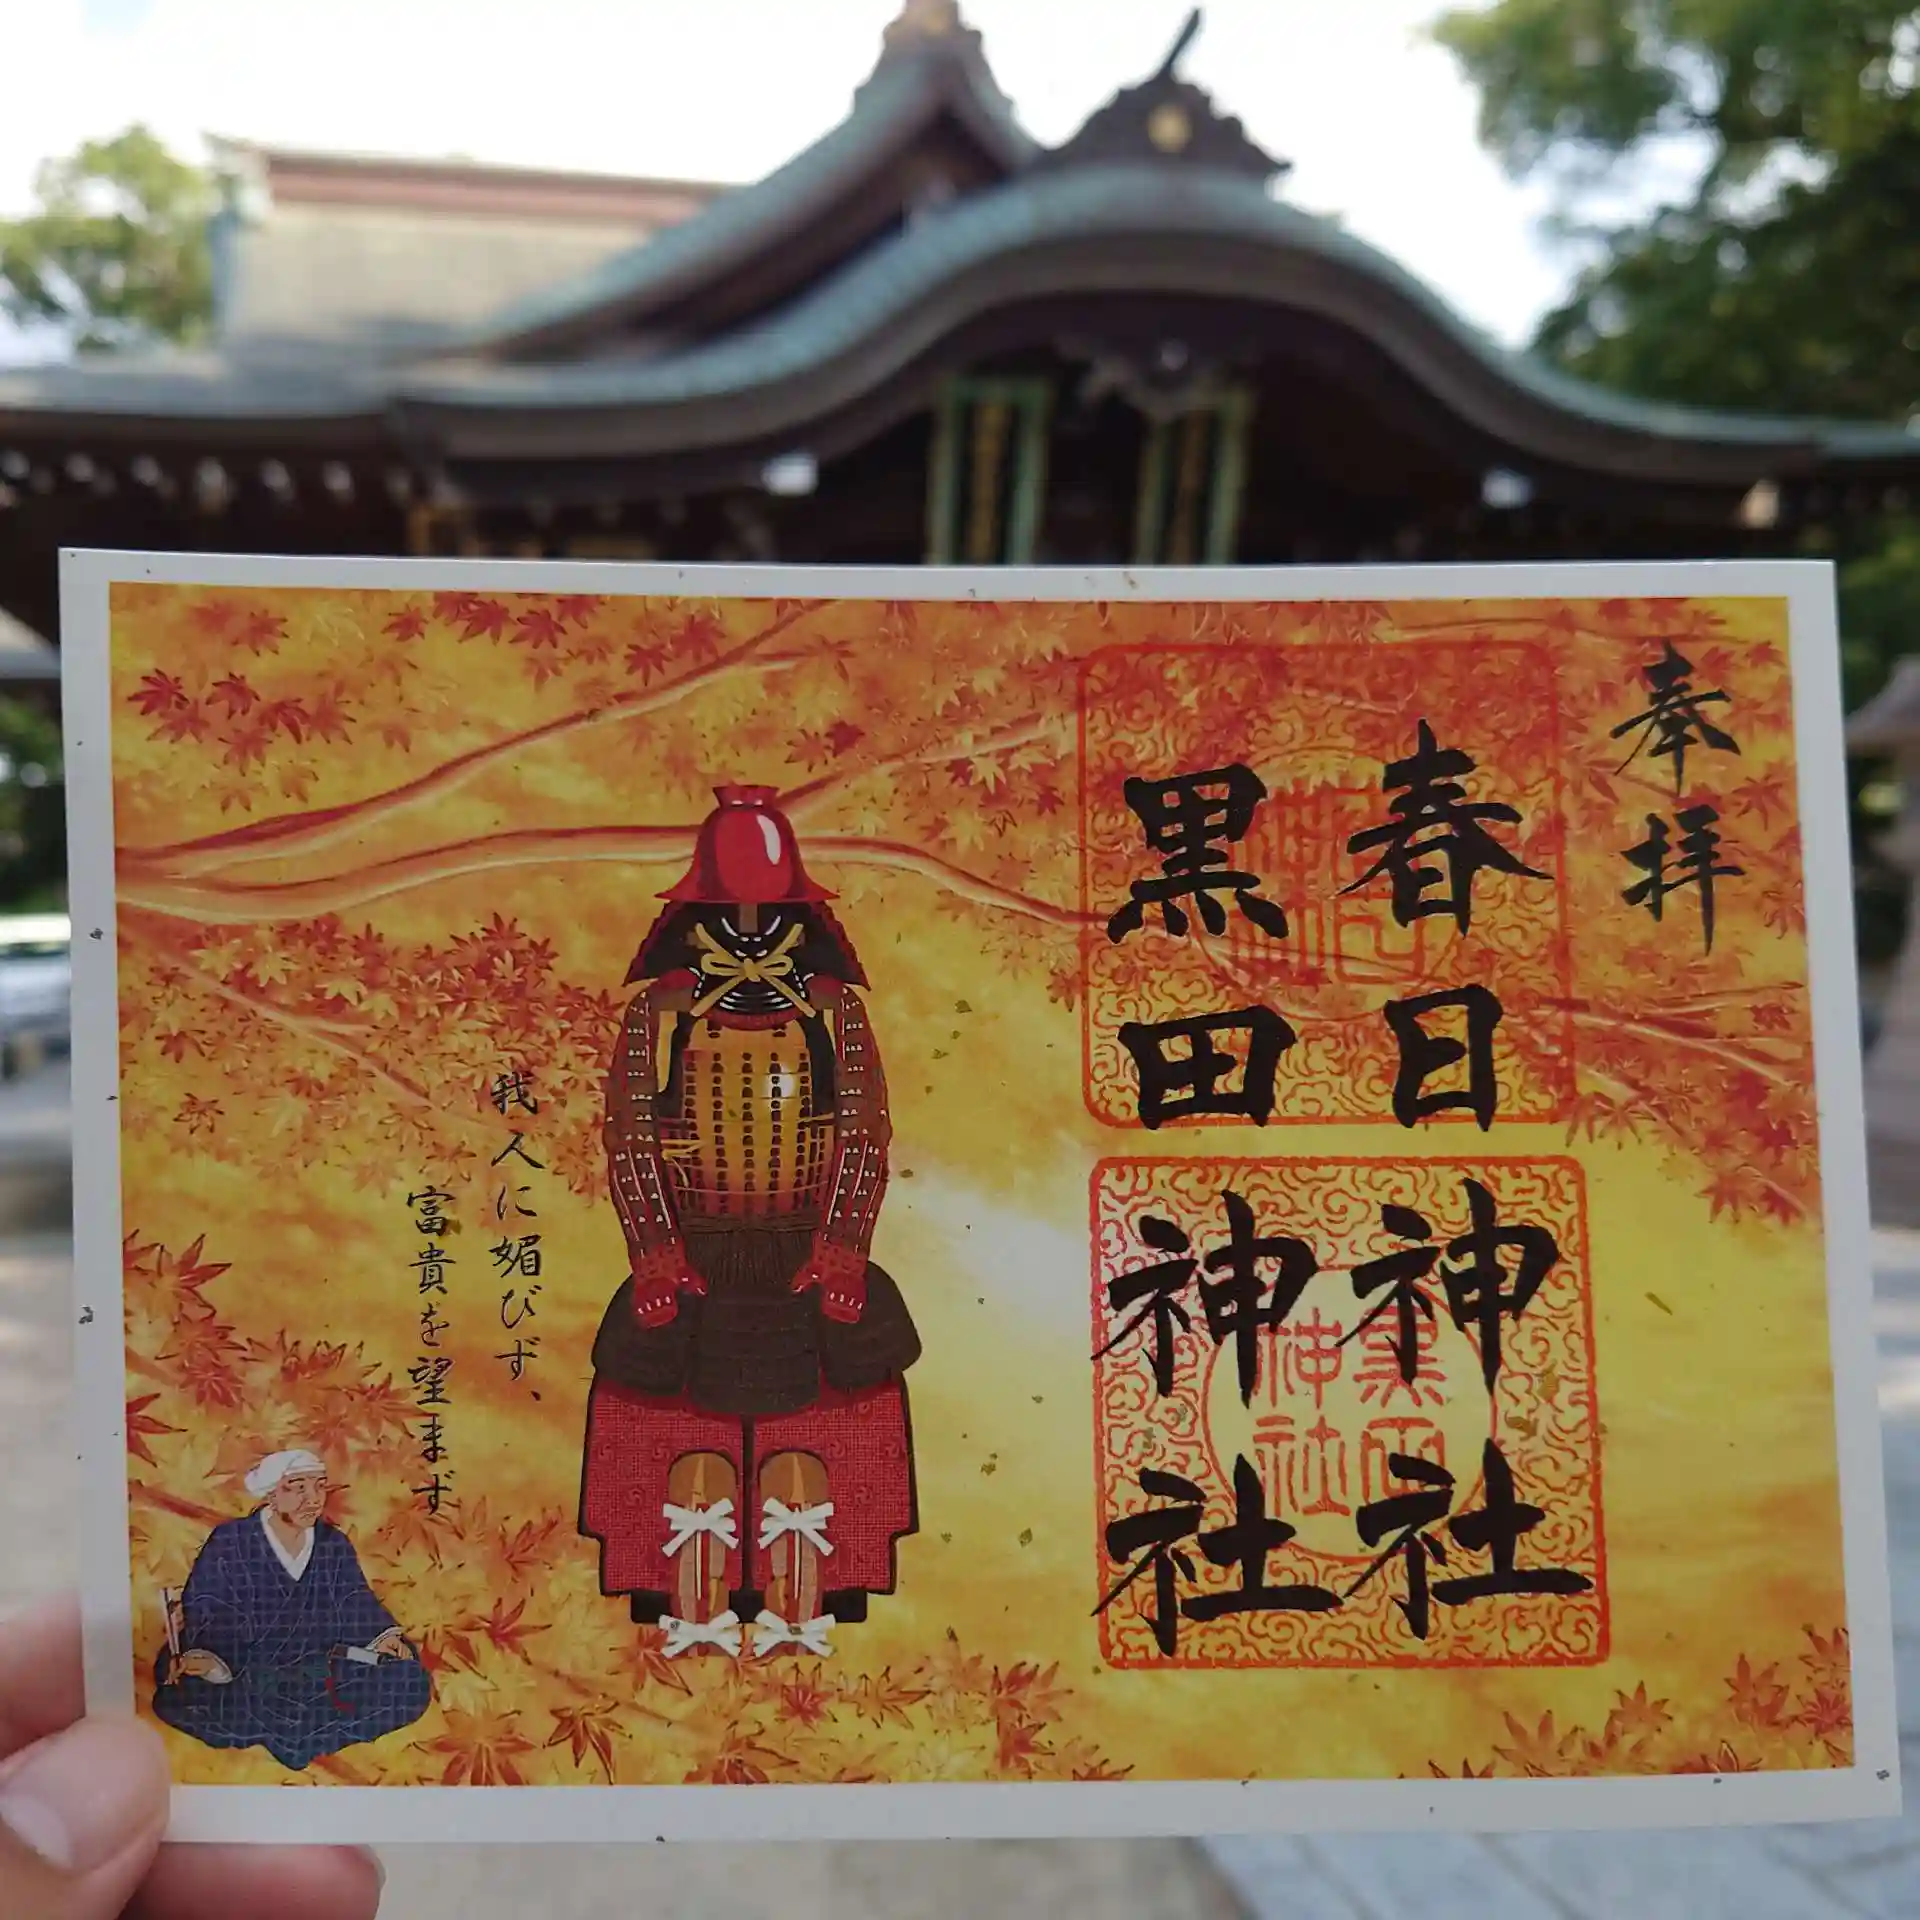 奉拝
春日神社
黒田神社
我人に媚びず、
富貴を望まず
黒田
神社